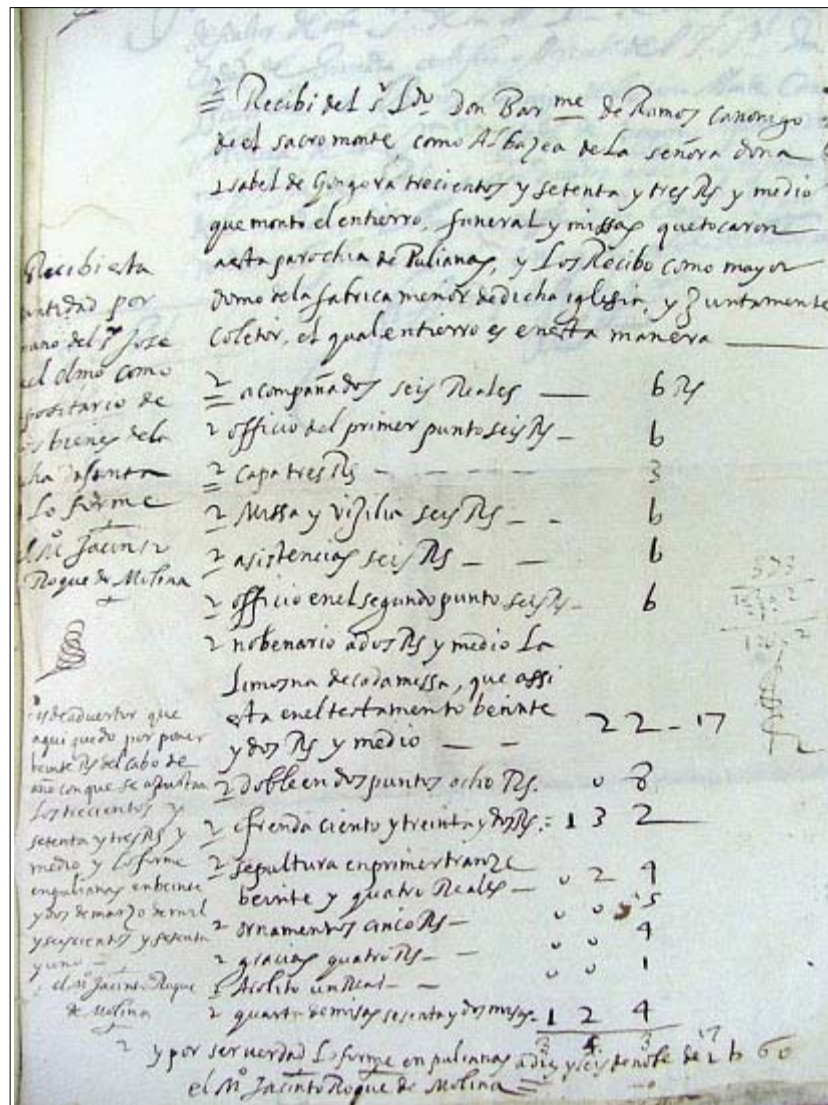 Recibi del sr Ldo Don Bar me de Ramos canonigo
de el sacro monte como Albazea de la señora doña
Isabel de Gongora trecientos y setenta y tres Rs y medio
que monto el entierro, funeral y missas que tocaron
a esta parochia de Pulianas, y Los Recibo como mayor
domo de la fabrica menor de dicha iglesia, y Juntamente
Coletor, el qual entierro es en esta manera
acompañados seis Reales — 6 Rs
officio del primer punto seis Rs — 6
capa tres Rs — 3
Missa y vijilia seis Rs — 6
asistencias seis Rs — 6
officio en el segundo punto seis Rs — 6
nobenario a dos Rs y medio La
Limosna de cada missa, que assi
esta en el testamento beinte
y dos Rs y medio — 22-17
doble en dos puntos ocho Rs. 0 8
ofrenda ciento y treinta y dos Rs. 132
sepultura en primer tranze
beinte y quatro Reales — 0 2 4
ornamentos cinco Rs — 0 0 5
gracias quatro Rs — 0 0 4
Acolito un Real — 0 0 1
quarta de misas sesenta y dos misas 124
y por ser verdad Lo firme en pulianas a diez y seis de nobe de
el Mo Jacinto Roque de Molina
Recibi esta
cantidad por
mano del sr Jose
del olmo como
depositario de
los bienes de la
dicha difunta
Lo firme
el Mo Jacinto
Roque de Molina
es de advertir que
aqui quedo por poner
beinte Rs del cabo de
año con que se ajustan
Los trecientos y
setenta y tres Rs y
medio y Lo firme
en pulianas en beinte
y dos de março de mil
y seiscientos y setenta
y uno
el Mo Jacinto Roque
de Molina
373